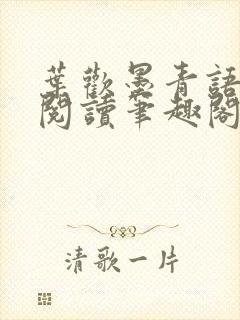 葉歡墨青語
閱讀筆趣閣
清歌一片